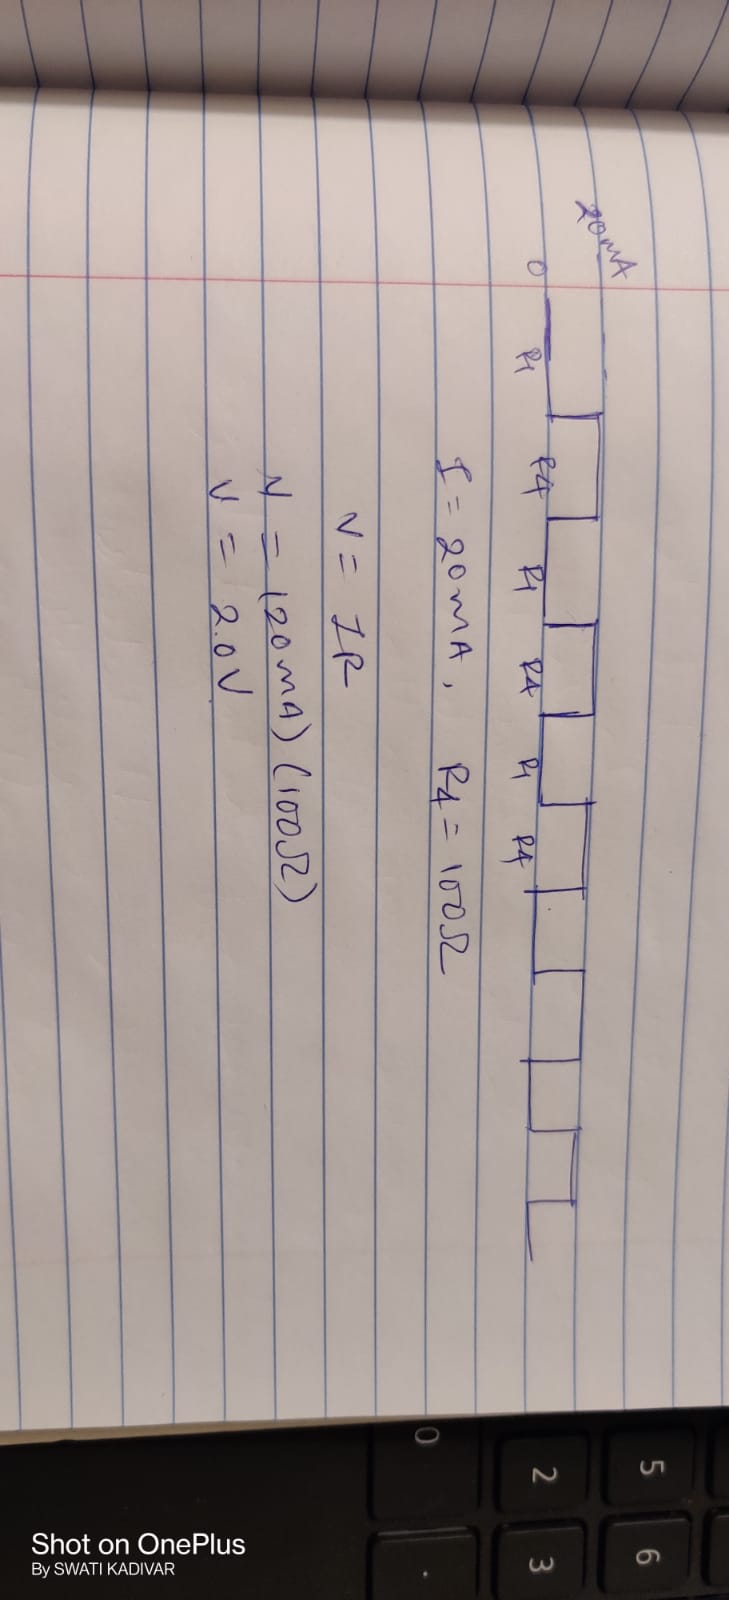 20mA
0 R1 R4 R1 R4 R1 R4
I = 20mA, R4 = 100Ω
V = IR
V = (20mA) (100Ω)
V = 2.0V
5 6
2 3
0 .
Shot on OnePlus
By SWATI KADIVAR